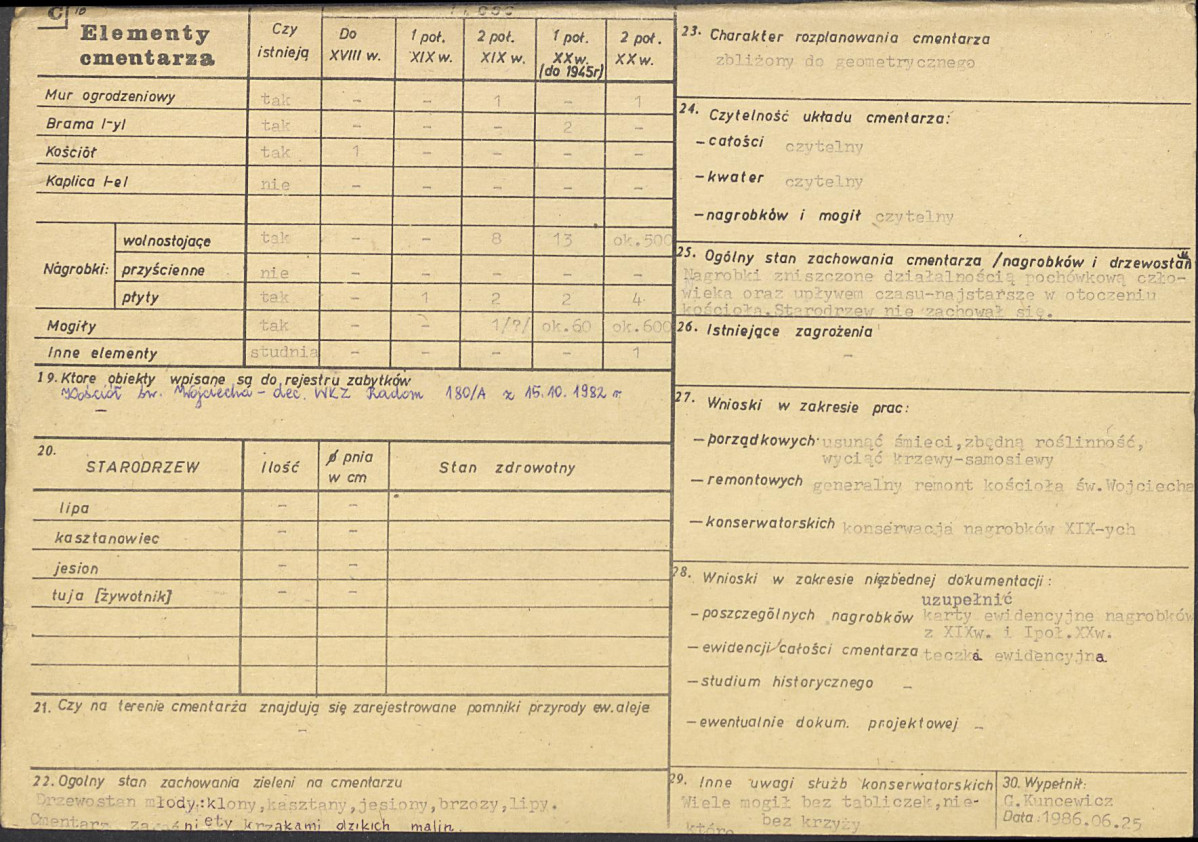 C
Elementy cmentarza | Czy istnieją | Do XVIII w. | 1 poł. XIX w. | 2 poł. XIX w. | 1 poł. XX w. (do 1945r) | 2 poł. XX w.
Mur ogrodzeniowy | tak | – | – | 1 | – | 1
Brama /-y/ | tak | – | – | – | 2 | –
Kościół | tak | 1 | – | – | – | –
Kaplica /-e/ | nie | – | – | – | – | –
Nagrobki: wolnostojące | tak | – | – | 8 | 13 | ok.500
przyścienne | nie | – | – | – | – | –
płyty | tak | – | 1 | 2 | 2 | 4
Mogiły | tak | – | – | 1/?/ | ok.60 | ok.600
Inne elementy | studnia | – | – | – | – | 1
19. Które obiekty wpisane są do rejestru zabytków
Kościół św. Wojciecha – dec. WKZ Radom 180/A z 15.10.1982 r.
–
20. STARODRZEW | Ilość | ø pnia w cm | Stan zdrowotny
lipa | – | –
kasztanowiec | – | –
jesion | – | –
tuja [żywotnik] | – | –
21. Czy na terenie cmentarza znajdują się zarejestrowane pomniki przyrody ew. aleje
–
22. Ogólny stan zachowania zieleni na cmentarzu
Drzewostan młody:klony,kasztany,jesiony,brzozy,lipy.
Cmentarz zarośnięty krzakami dzikich malin.
23. Charakter rozplanowania cmentarza
zbliżony do geometrycznego
24. Czytelność układu cmentarza:
– całości czytelny
– kwater czytelny
– nagrobków i mogił czytelny
25. Ogólny stan zachowania cmentarza /nagrobków i drzewostan
Nagrobki zniszczone działalnością pochówkową czło-
wieka oraz upływem czasu-najstarsze w otoczeniu
kościoła.Starodrzew nie zachował się.
26. Istniejące zagrożenia
–
27. Wnioski w zakresie prac:
– porządkowych usunąć śmieci,zbędną roślinność,
wyciąć krzewy-samosiewy
– remontowych generalny remont kościoła św.Wojciecha
– konserwatorskich konserwacja nagrobków XIX-ych
28. Wnioski w zakresie niezbednej dokumentacji:
uzupełnić
– poszczególnych nagrobków karty ewidencyjne nagrobków
z XIXw. i Ipoł.XXw.
– ewidencji/całości cmentarza teczka ewidencyjna
– studium historycznego –
– ewentualnie dokum. projektowej –
29. Inne uwagi służb konserwatorskich
Wiele mogił bez tabliczek,nie-
które bez krzyży
30. Wypełnił:
G.Kuncewicz
Data: 1986.06.25